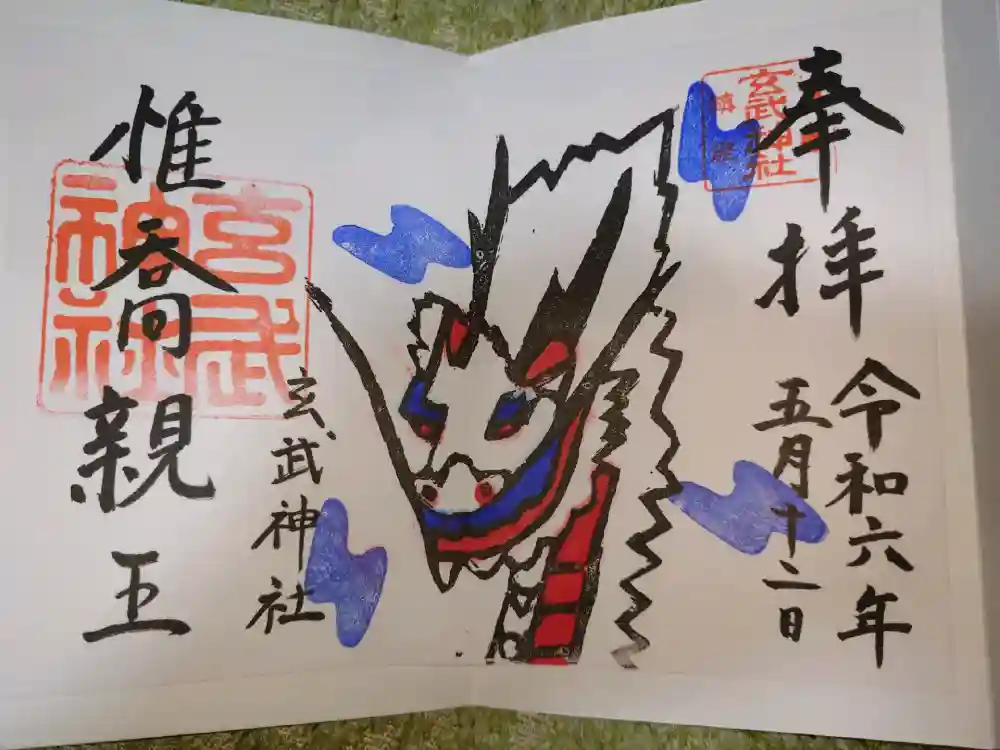 奉拝
玄武神社
令和六年
五月十二日
惟喬親王
玄武神社
玄武神社